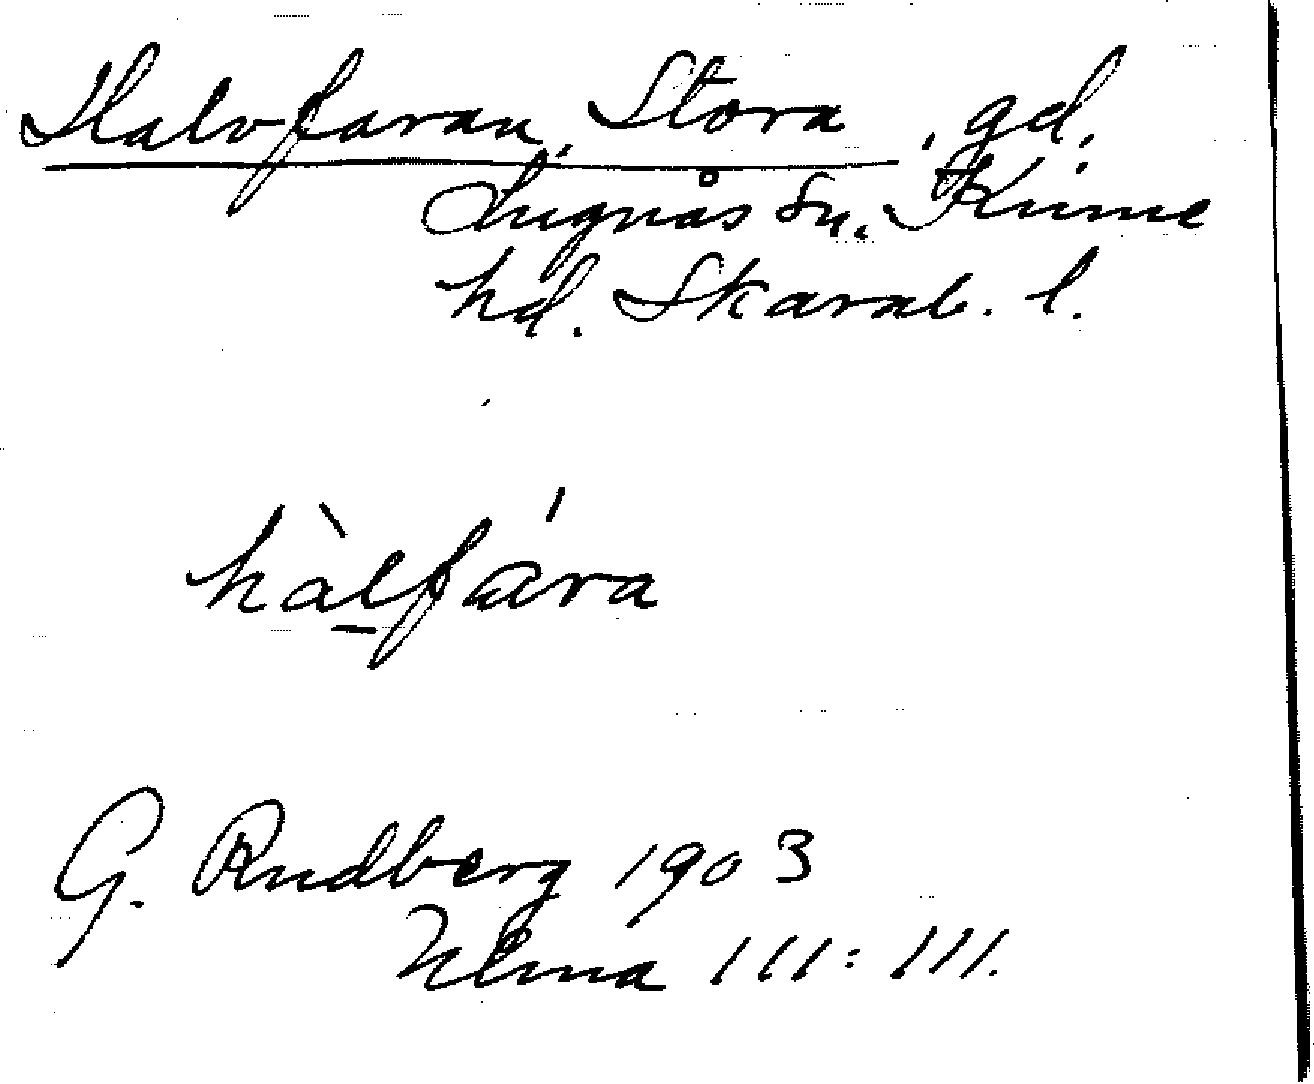 Halvfaran, Stora, gd.
Lugnås sn. Kinne
hd. Skarab. l.
hàlfára
G. Rudberg 1903
Ulma 111:111.